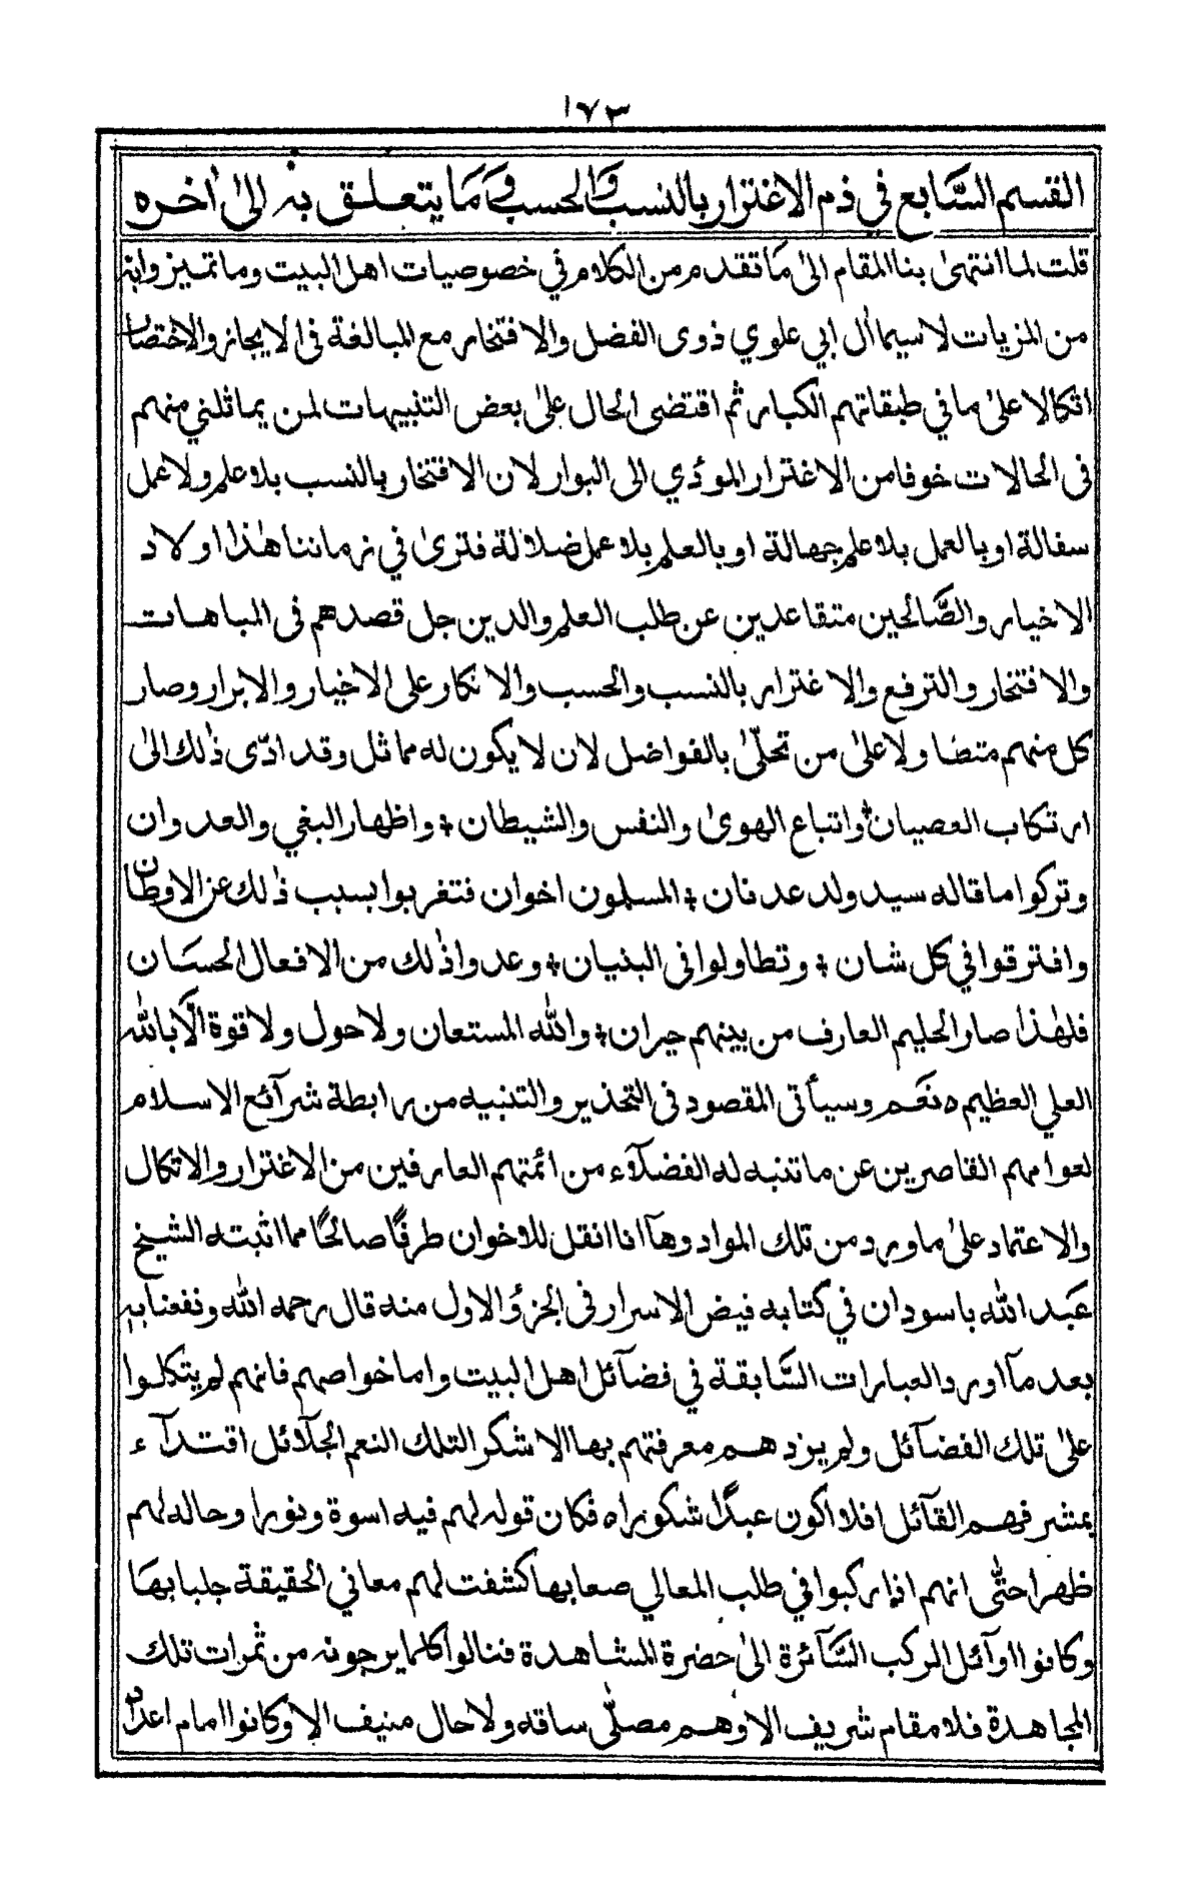 ١٧٣
القسم السَّابع في ذم الاغترار بالنسب والحسب وَمَا يتعلق به الىٰ اٰخره
قلت لما انتهىٰ بنا المقام الىٰ مَا تقدم من الكلام في خصوصيات اهل البيت وما تميزوا به
من المزيات لا سيما اٰل ابي علوي ذوى الفضل والافتخار مع المبالغة فى الايجاز والاختصار
اتكالا علىٰ ما في طبقاتهم الكبار ثم اقتضى الحال علىٰ بعض التنبيهات لمن يماثلني منهم
فى الحالات خوفا من الاغترار الموئدي الى البوار لان الافتخار بالنسب بلا علم ولا عمل
سفالة او بالعمل بلا علم جهالة او بالعلم بلا عمل ضلالة فترىٰ في زماننا هٰذا اولاد
الاخيار والصَّالحين متقاعدين عن طلب العلم والدين جل قصدهم فى المباهات
والافتخار والترفع والاغترار بالنسب والحسب والانكار على الاخيار والابرار وصار
كل منهم متضاولا علىٰ من تحلّىٰ بالفواضل لان لا يكون له مماثل وقد ادّى ذٰلك الىٰ
ارتكاب العصيان واتباع الهوىٰ والنفس والشيطان ؛ واظهار البغي والعدوان
وتركوا ما قاله سيد ولد عدنان ؛ المسلمون اخوان فتغربوا بسبب ذٰلك عن الاوطان
وافترقوا في كل شان ؛ وتطاولوا فى البنيان ؛ وعدوا ذٰلك من الافعال الحسَان
فلهٰذا صار الحليم العارف من بينهم حيران ؛ والله المستعان ولا حول ولا قوة الّا بالله
العلي العظيم ه نعَم وسيأتى المقصود فى التحذير والتنبيه من رابطة شرآئع الاسلام
لعوامهم القاصرين عن ما تنبه له الفضلآء من ائمتهم العارفين من الاغترار والاتكال
والاعتماد علىٰ ما ورد من تلك المواد وهآ انا انقل للاخوان طرفًا صالحًا مما اثبته الشيخ
عبد الله باسودان في كتابه فيض الاسرار فى الجزؤ الاول منه قال رحمه الله ونفعنا به
بعد مآ اورد العبارات السَّابقة في فضآئل اهل البيت واما خواصهم فانهم لم يتكلوا
علىٰ تلك الفضآئل ولم يزدهم معرفتهم بها الا شكر التلك النعم الجلآئل اقتدآء
بمشرفهم القآئل افلا اكون عبدًا شكورا ه فكان قوله لهم فيه اسوة ونورا وحاله لهم
ظهرا حتّٰى انهم اذا ركبوا في طلب المعالي صعابها كشفت لهم معاني الحقيقة جلبابهَا
وكانوا اوآئل الركب السَّآئرة الىٰ حضرة المشاهدة فنالوا كلما يرجونه من ثمرات تلك
المجاهدة فلا مقام شريف الا وهم مصلّى ساقه ولا حال منيف الا وكانوا امام اعدان